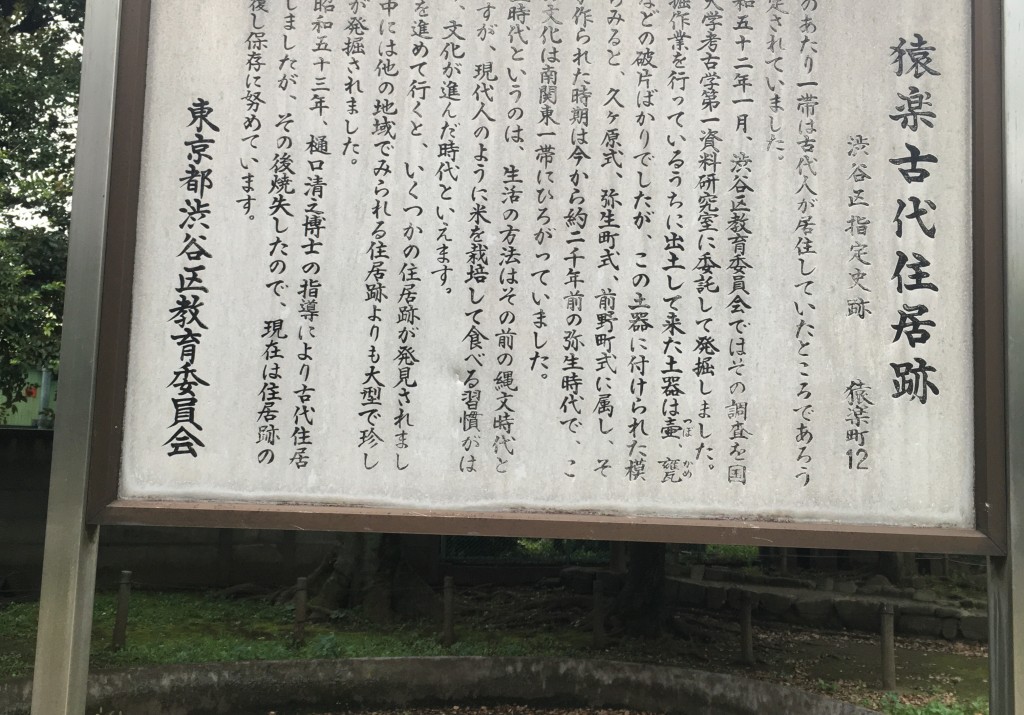 猿楽古代住居跡
渋谷区指定史跡　猿楽町12
のあたり一帯は古代人が居住していたところであろう
定されていました。
和五十二年一月、渋谷区教育委員会ではその調査を国
大学考古学第一資料研究室に委託して発掘しました。
掘作業を行っているうちに出土して来た土器は壷、甕
つぼ　かめ
などの破片ばかりでしたが、この土器に付けられた模
らみると、久ヶ原式、弥生町式、前野町式に属し、そ
作られた時期は今から約二千年前の弥生時代で、こ
文化は南関東一帯にひろがっていました。
時代というのは、生活の方法はその前の縄文時代と
すが、現代人のように米を栽培して食べる習慣がは
、文化が進んだ時代といえます。
を進めて行くと、いくつかの住居跡が発見されまし
中には他の地域でみられる住居跡よりも大型で珍し
が発掘されました。
昭和五十三年、樋口清之博士の指導により古代住居
しましたが、その後焼失したので、現在は住居跡の
復し保存に努めています。
東京都渋谷区教育委員会